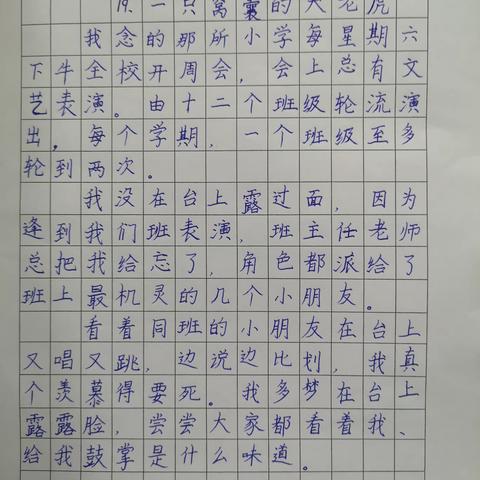 19.一只窝囊的大老虎
我念的那所小学每星期六
下牛全校开周会，会上总有文
艺表演。由十二个班级轮流演
出，每个学期，一个班级至多
轮到两次。
我没在台上露过面，因为
逢到我们班表演，班主任老师
总把我给忘了，角色都派给了
班上最机灵的几个小朋友。
看着同班的小朋友在台上
又唱又跳，边说边比划，我真
个羡慕得要死。我多梦在台上
露露脸，尝尝大家都看着我、
给我鼓掌是什么味道。